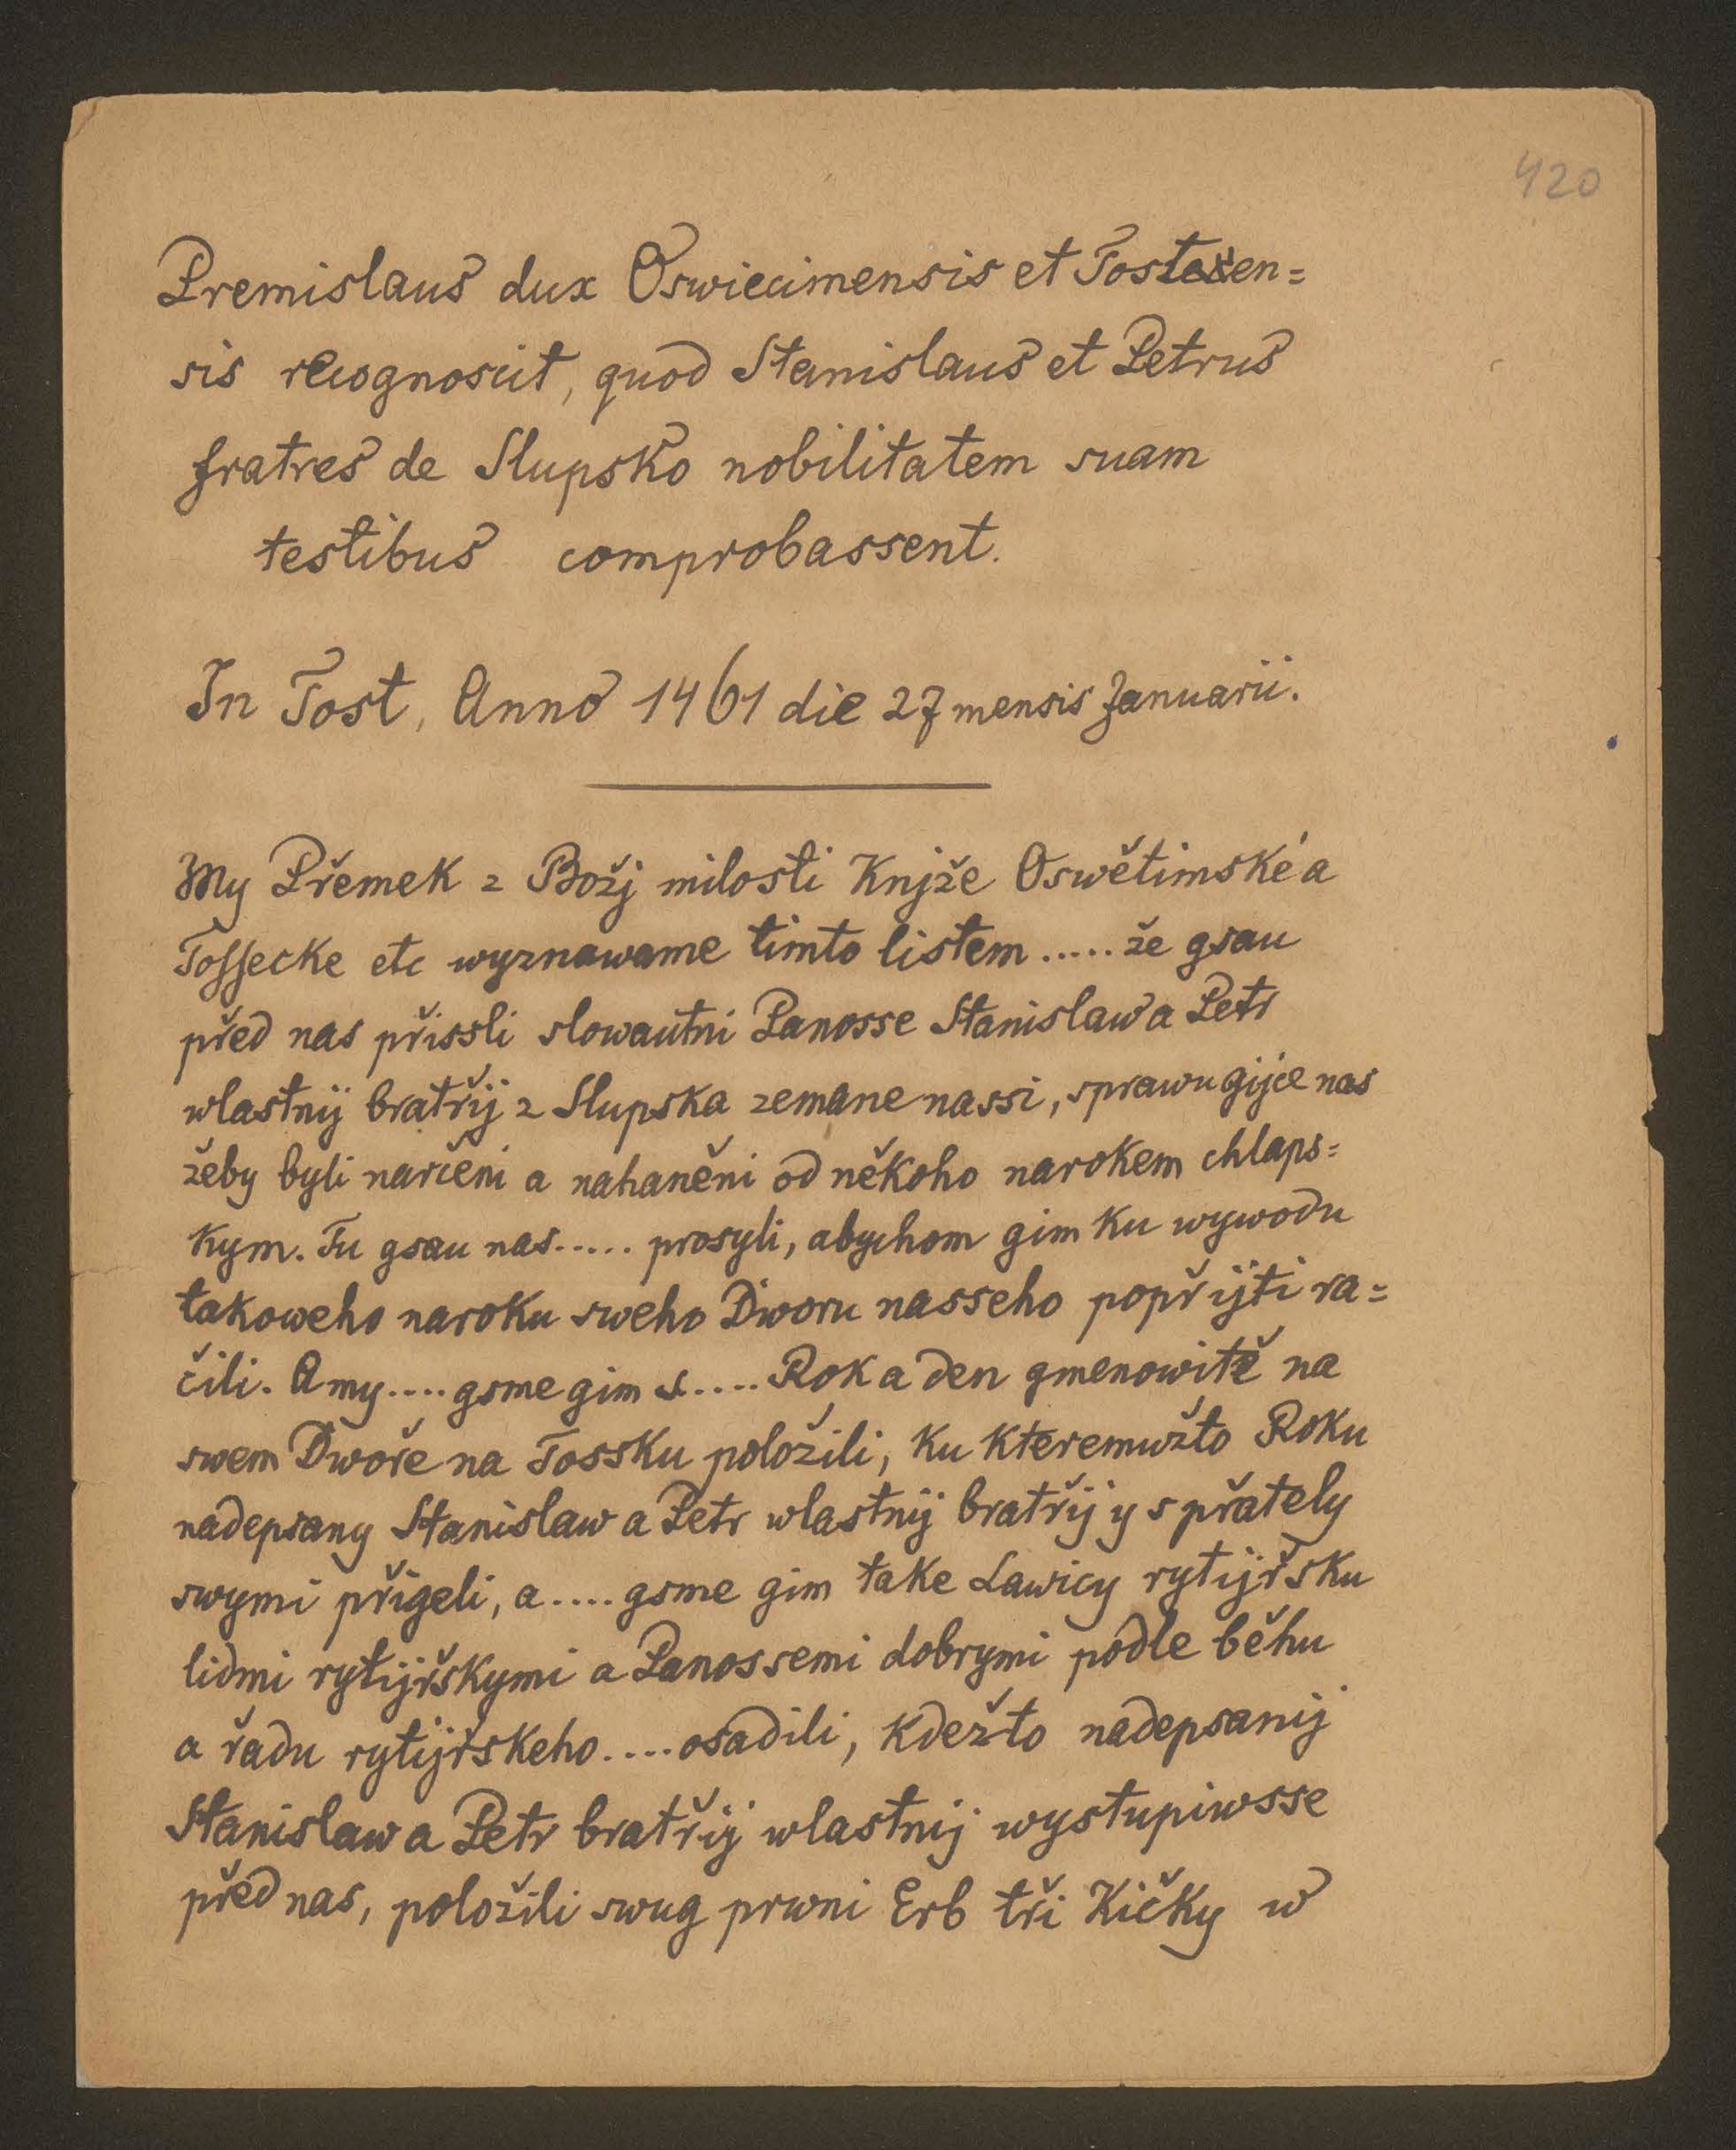 420
Premislaus dux Oswiecimensis et Tosten=
sis recognoscit, quod Stanislaus et Petrus
fratres de Slupsko nobilitatem suam
testibus comprobassent.
In Tost, Anno 1461 die 27 mensis Januarii.
My Přemek z Božj milosti Knjže Oswětimské a
Tossecke etc wyznawame timto listem ..... že gsau
před nas přissli slowautni Panosse Stanislaw a Petr
wlastnij bratřij z Slupska zemane nassi, sprawugijce nas
žeby byli narčeni a nahaněni od někoho narokem chlaps=
kym. Tu gsau nas ..... prosyli, abychom gim ku wywodu
takoweho naroku sweho Dworu nasseho popřijti ra=
čili. A my .... gsme gim ..... Rok a den gmenowitě na
swem Dwoře na Tossku položili, ku kteremužto Roku
nadepsany Stanislaw a Petr wlastnij bratřij y s přately
swymi přigeli, a .... gsme gim take Lawicy rytijřsku
lidmi rytijřskymi a Panossemi dobrymi podle běhu
a řadu rytijřskeho .... osadili, kdežto nadepsanij
Stanislaw a Petr bratřij wlastnij wystupiwsse
před nas, položili swug prwni Erb tři Kičky w